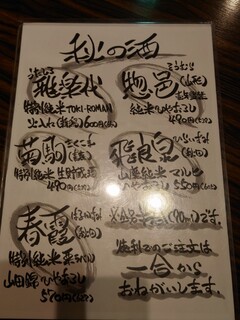 秋の酒
雅楽代
特別純米 TOKI-ROMAN
火入れ 600円
惣邑 (山形)
純米 ひやおろし
490円
菊駒
特別純米 生貯蔵酒
490円
飛良泉
山廃純米 マルヒ
ひやおろし 550円
春霞 はるかすみ
特別純米
山田錦 ひやおろし
570円
※全銘柄半合(90ml)です。
徳利でのご注文は
一合から
おねがいします。